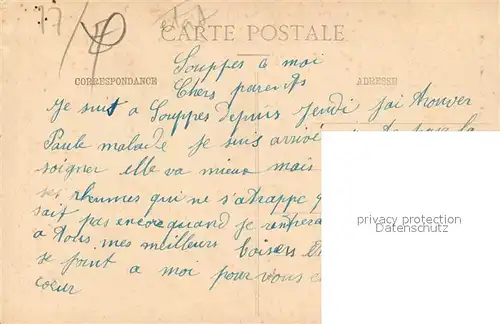 77/
CARTE POSTALE
CORRESPONDANCE
ADRESSE
Souppes a moi
Chers parents
Je suis a Souppes depuis Jeudi j'ai trouver
Paule malade je suis arrivé
soigner elle va mieux mais
ses rheumes qui ne s'atrappe
sait pas encore quand je rentrera
a tous, mes meilleurs baisers
se joint a moi pour vous
coeur
privacy protection
Datenschutz